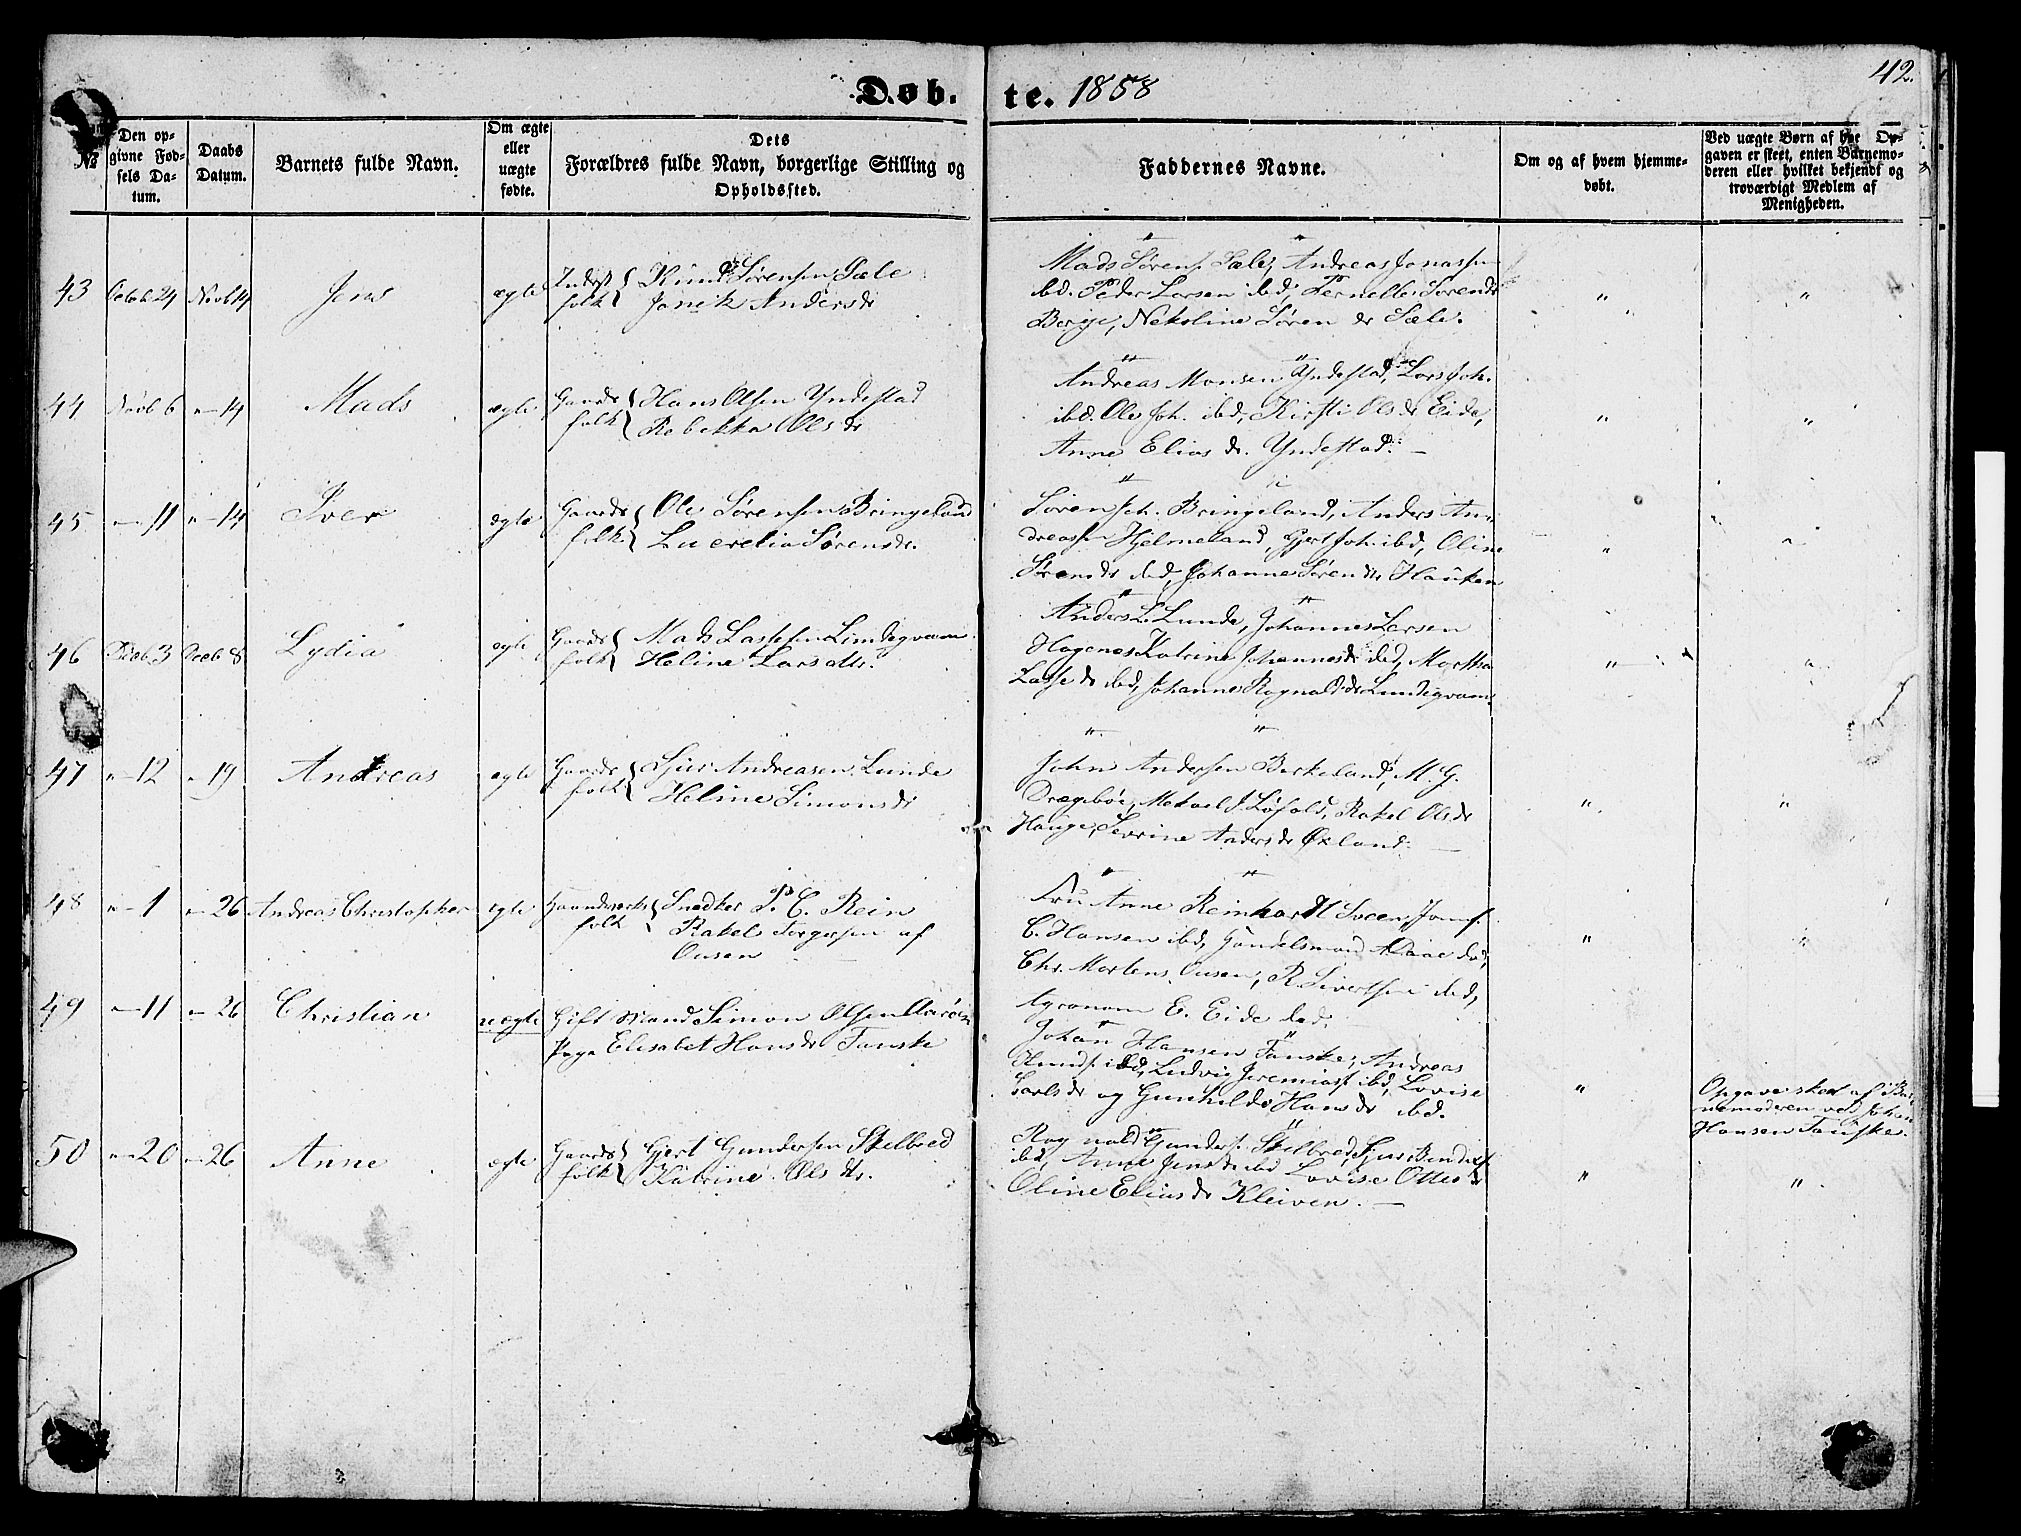 Døb-te. 1858
42.
No
Den op-
givne Fød-
sels Da-
tum.
Daabs
Datum.
Barnets fulde Navn.
Om ægte
eller
uægte
fødte.
Dets
Forældres fulde Navn, borgerlige Stilling og
Opholdssted.
Faddernes Navne.
Om og af hvem hjemme-
døbt.
Ved uægte Børn af hvem Op-
gaven er skeet, enten Barnemo-
deren eller hvilket bekjendt og
troværdigt Medlem af
Menigheden.
43 Octob 24 Novb 14 Jens ægte
folk Knud Sørensen Sæle
Anders dr
Mads Sørens. Sæle, Andreas Jonassen
ibd. Peder Larsen ibd, Pernelle Sørens dr
Berge, Nekoline Søren dr Sæle.
" "
44 Novb 6 " 14 Mads ægte
Gaards folk Hans Olsen Yndestad
Rebekka Ols dr
Andreas Monsen Yndestad, Lars Joh.
ibd. Ole Joh. ibd, Kirsti Ols dr Eide,
Anne Elias dr. Yndestad. —
" "
45 " 11 " 14 Iver ægte
Gaards folk Ole Sørensen Bringeland
Lucretia Sørensdr.
Søren Joh. Bringeland, Anders An-
dreassen Hjelmeland, Gjert Joh. ibd, Oline
Sørensdr ibd, Johanne Sørensdr Hauken
" "
46 Decb 3 Decb 8 Lydia ægte
Gaards folk Mads Lassesen Lundegvam
Heline Lars dtr.
Anders L. Lunde, Johannes Larsen
Hagenes Katrine Johannesdr ibd, Martha
Lasse dr ibd, Johanne Ragnaldsdr Lundegvam.
" "
47 " 12 " 19 Andreas ægte
Gaards folk Sjur Andreasen Lunde
Heline Simonsdr
John Andersen Birkeland, M. G.
Drægebøe, Mekael J. Løfald, Rakel Olsdr
Hauge, Severine Anders dr Øxland. —
" "
48 " 1 " 26 Andreas Christopher ægte
Haandværks folk Snedker P. C. Rein
Rakel Torgersen af
Ousen
Fru Anne Reinhardt Sveen, Jomf.
C. Hansen ibd, Handelsmand Aaae ibd,
Chr. Mortens. Ousen, R. Sivertsen ibd,
Agronom E. Eide ibd.
" "
49 " 11 " 26 Christian uægte
Gift Mand Simon Olsen
Pige Elisabet Hans dr Fanske
Johan Hansen Fanske, Andreas
Knuds. ibd, Ludvig Jeremias. ibd, Lovise
Carlsdr og Gunhilde Hansdr ibd.
"
Opgave skeet af Bar-
nemoderen ved Johan
Hansen Fanske.
50 " 20 " 26 Anne ægte
Gaards folk Gjert Gundersen Skelbred
Katrine Ols dtr.
Ragnald Gunders. Skelbred, Sjur Bendixs.
ibd, Anne Jensdr ibd Lovise Otter dr
Oline Elias dr Kleiven. —
" "